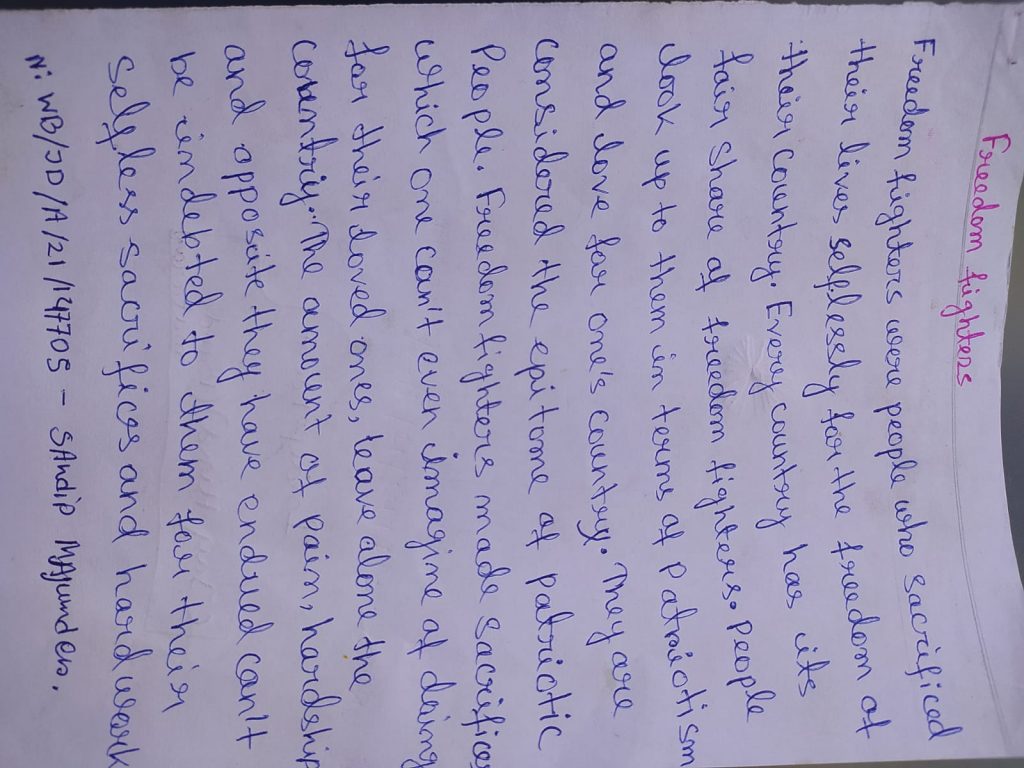 Freedom fighters
Freedom fighters were people who sacrificed
their lives selflessly for the freedom of
their country. Every country has its
fair share of freedom fighters. people
look up to them in terms of patriotism
and love for one's country. They are
considered the epitome of patriotic
People. Freedom fighters made sacrifices
which one can't even imagine of doing
for their loved ones, leave alone the
country. The amount of pain, hardship
and opposite they have endured can't
be indebted to them for their
selfless sacrifices and hard work
N: WB/JD/A/21/147705 - SAndip MAjumder.